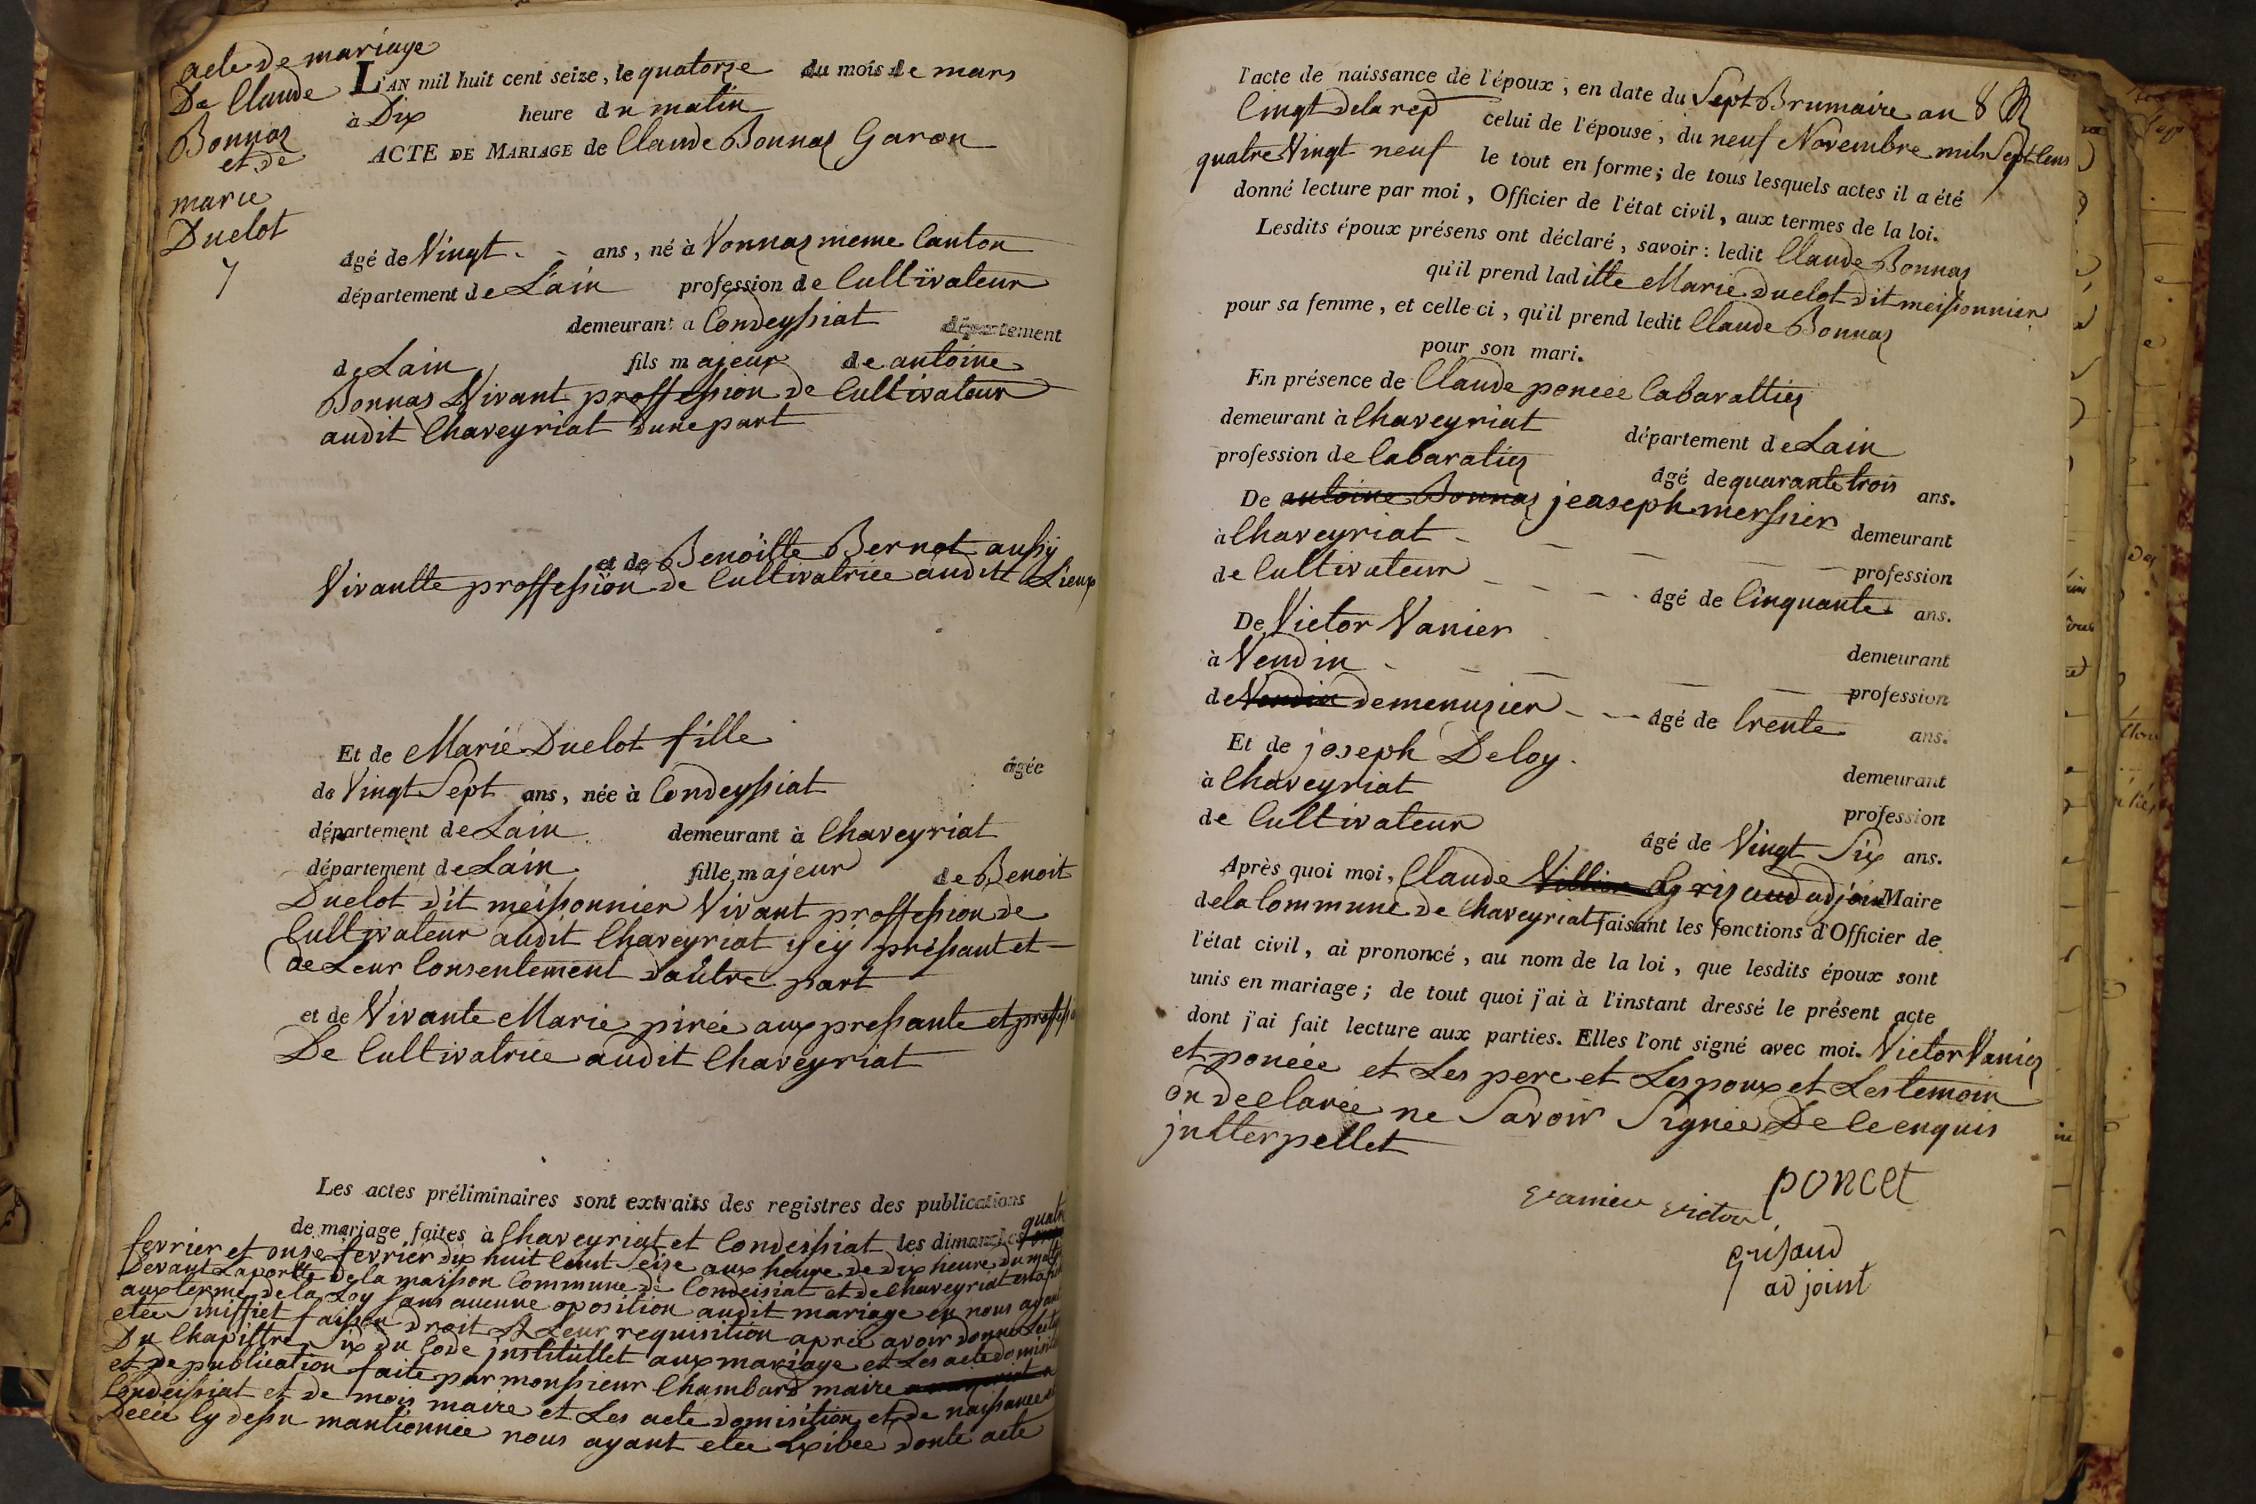 acte de mariage
De Claude
Bonnaz
et de
marie
Duclot
7
L'AN mil huit cent seize, le quatorze du mois de mars
à Dix heure du matin
ACTE DE MARIAGE de Claude Bonnaz Garon
âgé de Vingt - - ans, né à Vonnaz meme Canton
département de Lain profession de Cultivateur
demeurant a Condeyssiat département
de Lain fils majeur de antoine
Bonnas Vivant proffession de Cultivateur
audit Chaveyriat dune part
et de Benoitte Bernot aussÿ
Vivantte proffession de Cultivatrice audit Lieux
Et de Marie Duclot fille âgée
de Vingt Sept ans, née à Condeyssiat
département de Lain demeurant à Chaveyriat
département de Lain fille majeur de Benoit
Duclot dit meissonnier Vivant proffession de
Cultivateur audit Chaveyriat ycÿ pressant et
de Leur Consentement dautre part
et de Vivante Marie pirée aux pressante et
De Cultivatrice audit Chaveyriat
Les actes préliminaires sont extraits des registres des publications
de mariage, faites à Chaveyriat et Condeissiat les dimanches
fevrier et onze fevrier dix huit Cent Seize aux heure de dix heure du
Devant Laportte de la maisson Commune de Condeisiat et de Chaveyriat
aux terme de la Loy Sans aucune oposition audit mariage en nous ayant
etée droit A Leur requisition aprée avoir donné
Du Chapittre Six du Code institullet aux mariage et Les acte
et de publication faite par monssieur Chambard maire
Condeissiat et de mois maire et Les acte domisition et de naissance
Decée Cy dessu mantionnée nous ayant etee Exibee donte acte
l'acte de naissance de l'époux, en date du Sept Brumaire an 8
Cinqt dela rep celui de l'épouse, du neuf Novembre mil Sept Cens
quatre Vingt neuf le tout en forme; de tous lesquels actes il a été
donné lecture par moi, Officier de l'état civil, aux termes de la loi.
Lesdits époux présens ont déclaré, savoir: ledit Claude Bonnaz
qu'il prend laditte Marie Duclot dit meissonnier
pour sa femme, et celle-ci, qu'il prend ledit Claude Bonnaz
pour son mari.
En présence de Claude poncée Cabarattier
demeurant à Chaveyriat département de Lain
profession de Cabaratier âgé de quarante trois ans.
De antoine Bonnaz jeaseph merssier demeurant
à Chaveyriat - profession
de Cultivateur âgé de Cinquante ans.
De Victor Vanier demeurant
à Vendin - profession
de Vendin de menuzier - âgé de trente ans.
Et de joseph Deloy. demeurant
à Chaveyriat profession
de Cultivateur âgé de Vingt Six ans.
Après quoi moi, Claude Grizaud adjoin Maire
dela Commune de Chaveyriat faisant les fonctions d'Officier de
l'état civil, ai prononcé, au nom de la loi, que lesdits époux sont
unis en mariage; de tout quoi j'ai à l'instant dressé le présent acte
dont j'ai fait lecture aux parties. Elles l'ont signé avec moi. Victor Vanier
et poncée et Les pere et Lespoux et Les temoin
on declarée ne Savoir Signée De ce enquis
jntterpellet
poncet
vanieu victou
grisaud
adjoint